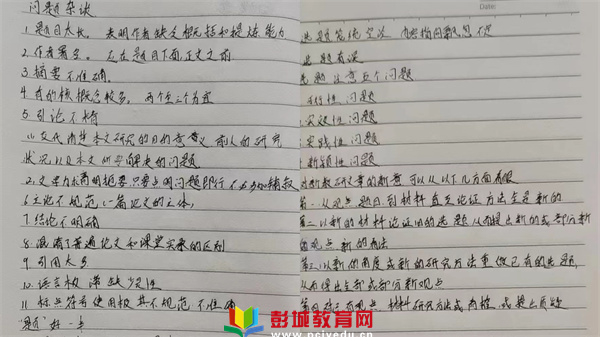 问题杂谈
1.题目太长，表明作者缺乏概括和提炼能力
2.作者署名，应在题目下面正文之前
3.摘要不准确。
4.有的核概念较多，两个至三个为宜
5.引论不精
(1)交代清楚本文研究的目的意义 前人的研究
状况以及本文所需解决的问题
2.文字力求简明扼要只要点明问题即行不必多加铺叙
6.立论不规范(一篇论文的主体)
7.结论不明确
8.混淆了普通论文和课堂实录的区别
9.引用太多
10.语言
11.标点符号使用极其不规范 不准确
Date:
选题笼统空泛
选题有误
选题注意五个问题
性问题
实效性问题
实践性问题
新颖性问题
教研文章的新意 可以从以下几方面
第一.从观点 题目到材料直至论证方法全是新的
第二以新的材料论证旧的选题 从而提出新的或部分新
的观点 新的看法
第三以新的角度或新的研究方法重做已有的选题，
从而得出全部或部分新观点
观点、材料研究方法或
彭城教育网
www.pcjyedu.cn